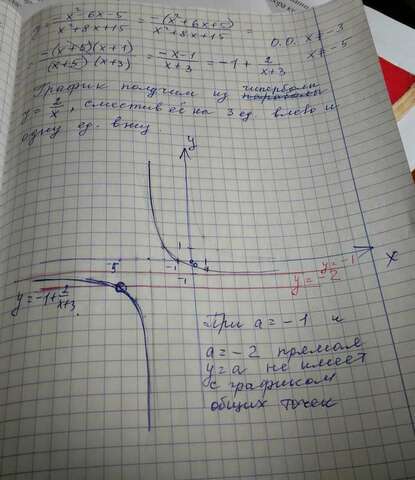 y = -x² - 6x - 5 / x² + 8x + 15 = -(x² + 6x + 5) / x² + 8x + 15 =
О.О. x ≠ -3
x ≠ -5
= -(x+5)(x+1) / (x+5)(x+3) = -x-1 / x+3 = -1 + 2 / x+3
График получим из гиперболы
y = 2/x, сместив её на 3 ед. влево и
одну ед. вниз.
y
1
-5
-1
1
x
-1
y = -1
y = -2
y = -1 + 2 / x+3
При a = -1 и
a = -2 прямая
y = a не имеет
с графиком
общих точек